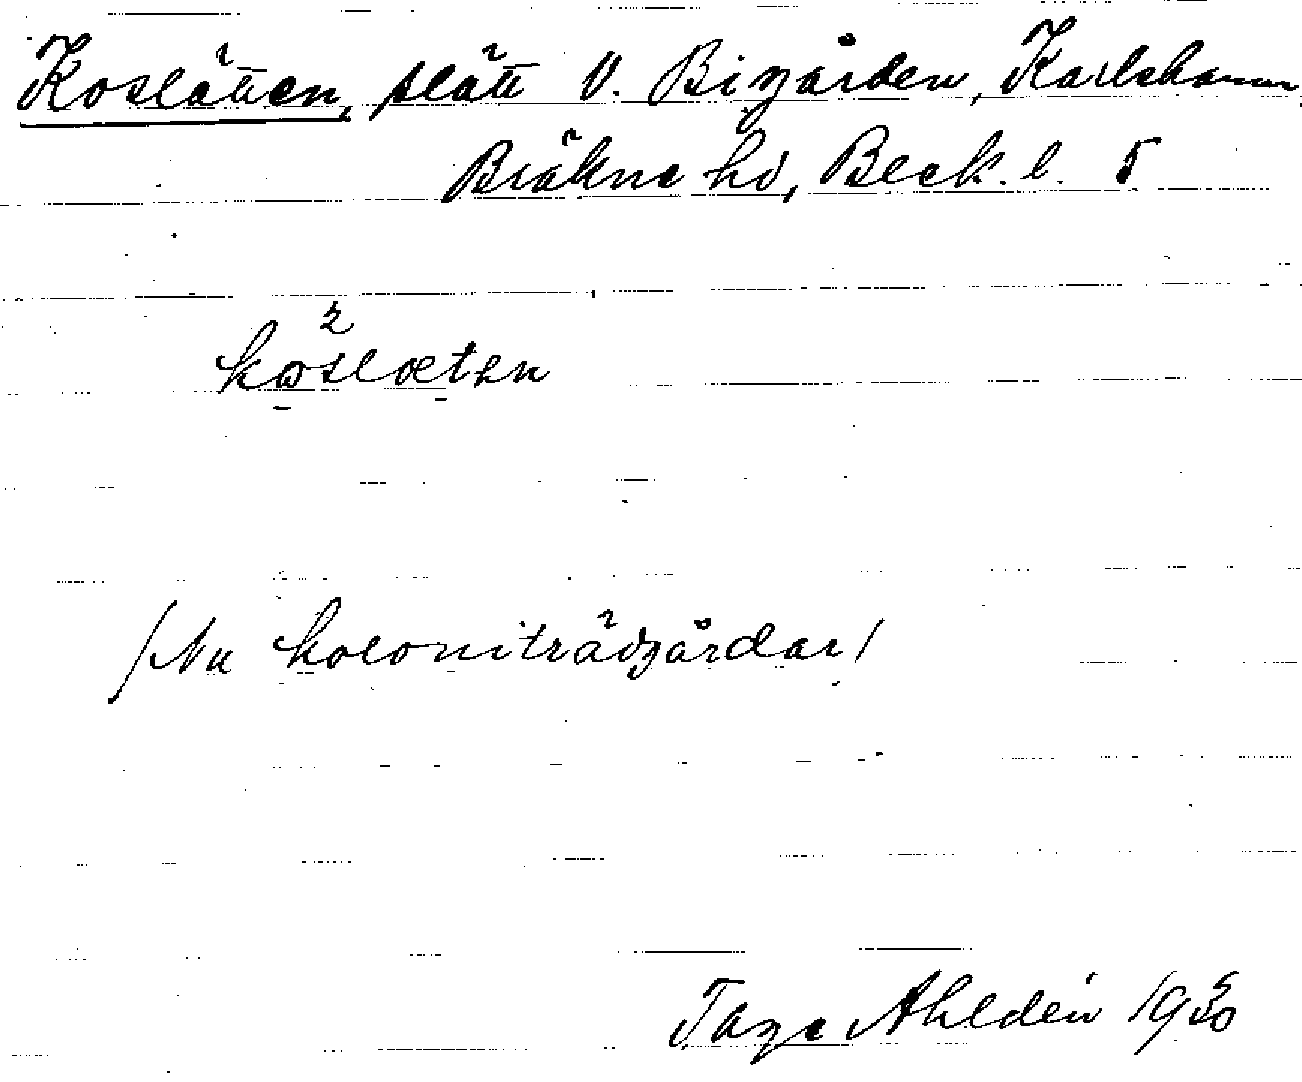 Koslätten, slätt V. Bigården, Karlshamn
Bräkne hd, Blek. l. 5
2
koslætən
/Nu koloniträdgårdar/
Tage Ahldén 1950